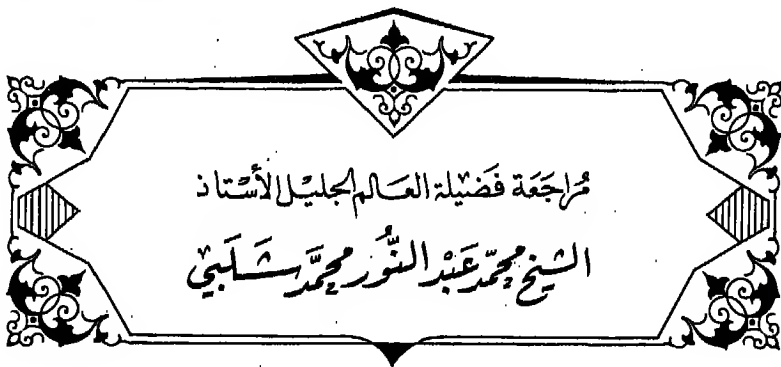 مُرَاجَعَة فَضِيْلَة العَالم الجَليْل الأُسْتَاذ
الشيخ محمّد عَبْد النُّور محمَّد شَلَبِي